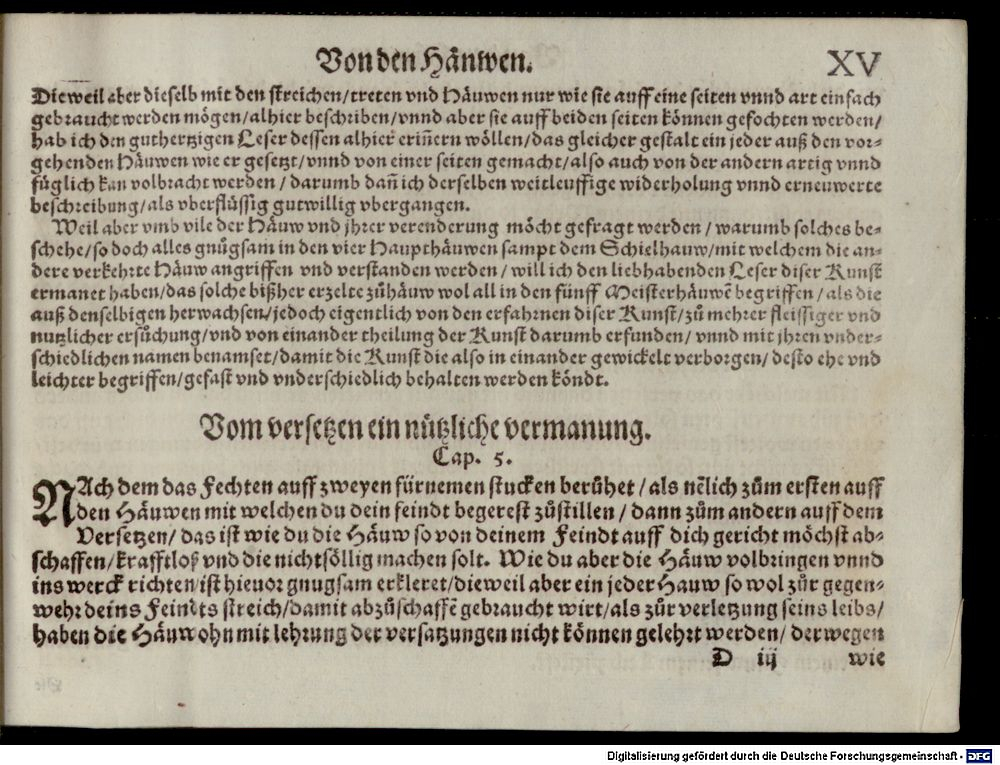 Von den Häuwen. XV
Dieweil aber dieselb mit den streichen/treten vnd Häuwen nur wie sie auff eine seiten vnnd art einfach
gebraucht werden mögen/alhier beschriben/vnnd aber sie auff beiden seiten können gefochten werden/
hab ich den guthertzigen Leser dessen alhier eriñern wöllen/das gleicher gestalt ein jeder auß den vor-
gehenden Häuwen wie er gesetzt/vnnd von einer seiten gemacht/also auch von der andern artig vnnd
füglich kan volbracht werden / darumb dañ ich derselben weitleuffige widerholung vnnd ernewerte
beschreibung/als vberflüssig gutwillig vbergangen.
Weil aber vmb vile der Häuw vnd jhrer verenderung möcht gefragt werden / warumb solches be-
schehe/so doch alles gnůgsam in den vier Haupthäuwen sampt dem Schielhauw/mit welchem die an-
dere verkehrte Häuw angriffen vnd verstanden werden / will ich den liebhabenden Leser diser Kunst
ermanet haben/das solche bißher erzelte zůhäuw wol all in den fünff Meisterhäuwẽ begriffen / als die
auß denselbigen herwachsen/jedoch eigentlich von den erfahrnen diser Kunst/zů mehrer fleissiger vnd
nutzlicher ersůchung/vnd von einander theilung der Kunst darumb erfunden/ vnnd mit jhren vnder-
schiedlichen namen benamset/damit die Kunst die also in einander gewickelt verborgen/ desto ehe vnd
leichter begriffen/gefast vnd vnderschiedlich behalten werden köndt.
Vom versetzen ein nützliche vermanung.
Cap. 5.
NAch dem das Fechten auff zweyen fürnemen stucken berůhet / als nẽlich zům ersten auff
den Häuwen mit welchen du dein feindt begerest zůstillen / dann zům andern auff dem
Versetzen/ das ist wie du die Häuw so von deinem Feindt auff dich gericht möchst ab-
schaffen/krafftloß vnd die nichtsöllig machen solt. Wie du aber die Häuw volbringen vnnd
ins werck richten/ist hieuor gnugsam erkleret/dieweil aber ein jeder Hauw so wol zůr gegen-
wehr deins Feindts streich/damit abzůschaffẽ gebraucht wirt/als zůr verletzung seins leibs/
haben die Häuw ohn mit lehrung der versatzungen nicht können gelehrt werden/ derwegen
D iij wie
Digitalisierung gefördert durch die Deutsche Forschungsgemeinschaft - DFG